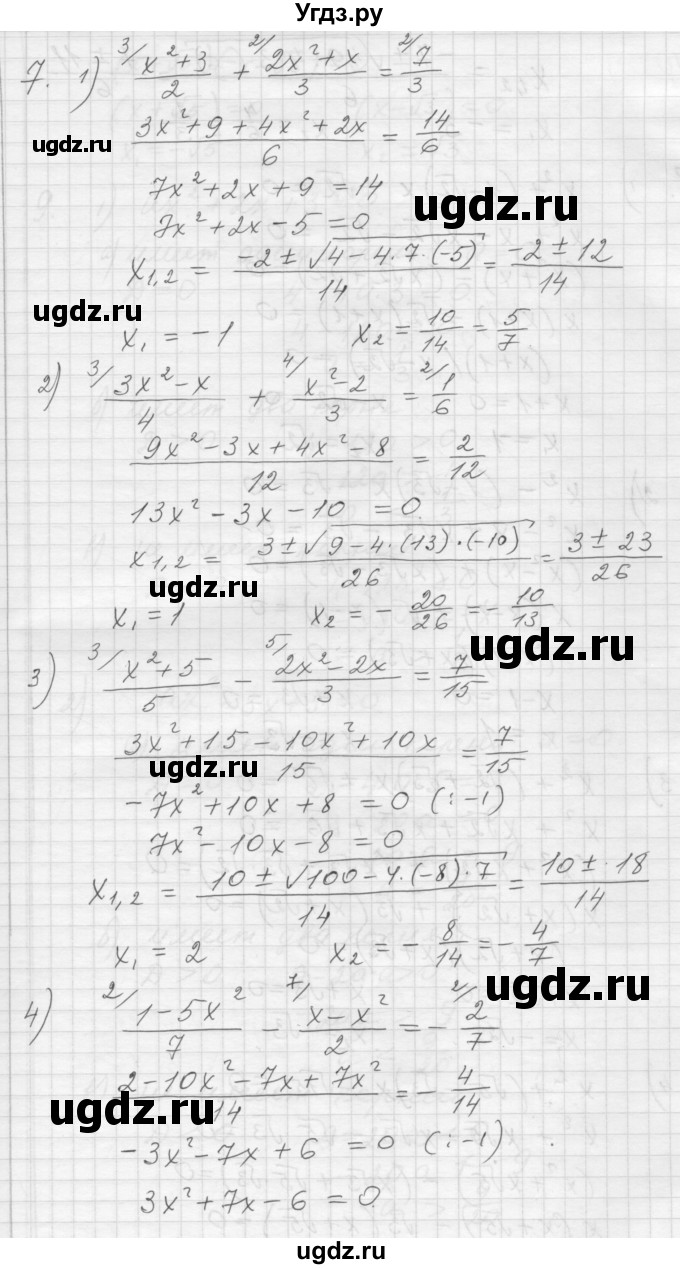 Угдз.ру
7. 1) 3/ (x²+3)/2 + 2/ (2x²+x)/3 = 2/ 7/3
(3x²+9+4x²+2x)/6 = 14/6
ugdz.ru
7x²+2x+9 = 14
ugdz.ru
7x²+2x-5 = 0
x₁,₂ = (-2±√(4-4·7·(-5)))/14 = (-2±12)/14
ugdz.ru
x₁ = -1 x₂ = 10/14 = 5/7.
2) 3/ (3x²-x)/4 + 4/ (x²-2)/3 = 2/ 1/6
(9x²-3x+4x²-8)/12 = 2/12
13x²-3x-10 = 0.
x₁,₂ = (3±√(9-4·(13)·(-10)))/26 = (3±23)/26
ugdz.ru
x₁ = 1 x₂ = -20/26 = -10/13.
ugdz.ru
3) 3/ (x²+5)/5 - 5/ (2x²-2x)/3 = 7/15
(3x²+15-10x²+10x)/15 = 7/15
ugdz.ru
-7x²+10x+8 = 0 (:-1)
7x²-10x-8 = 0
x₁,₂ = (10±√(100-4·(-8)·7))/14 = (10±18)/14
x₁ = 2 x₂ = -8/14 = -4/7
ugdz.ru
4) 2/ (1-5x²)/7 - 7/ (x-x²)/2 = - 2/ 2/7
(2-10x²-7x+7x²)/14 = -4/14
ugdz.ru
ugdz.ru
-3x²-7x+6 = 0 (:-1).
3x²+7x-6 = 0.
ugdz.ru